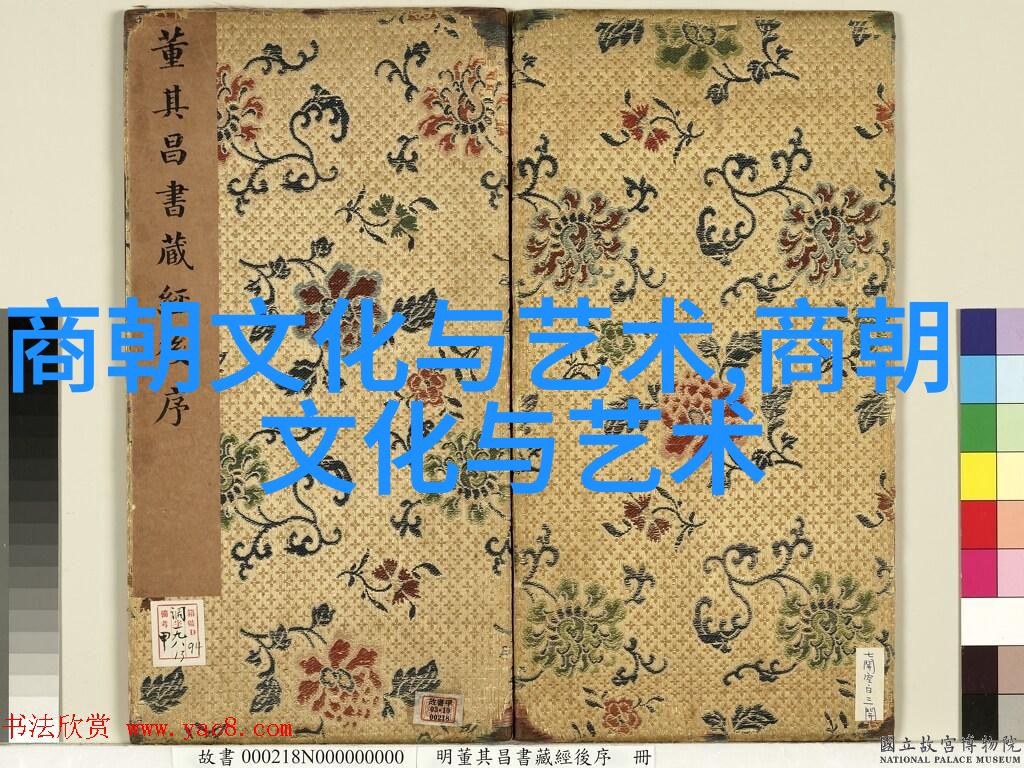 董其昌書藏經後序
商朝文化与艺术,商朝
文化与艺术
箱號D
備考
调字九八
甲 13 94
故書甲
03-10
00218
七開空白三開
书法欣赏 www.yac8.com
故書 000218N000000000 明董其昌書藏經後序 冊
國立故宮博物院
NATIONAL PALACE MUSEUM